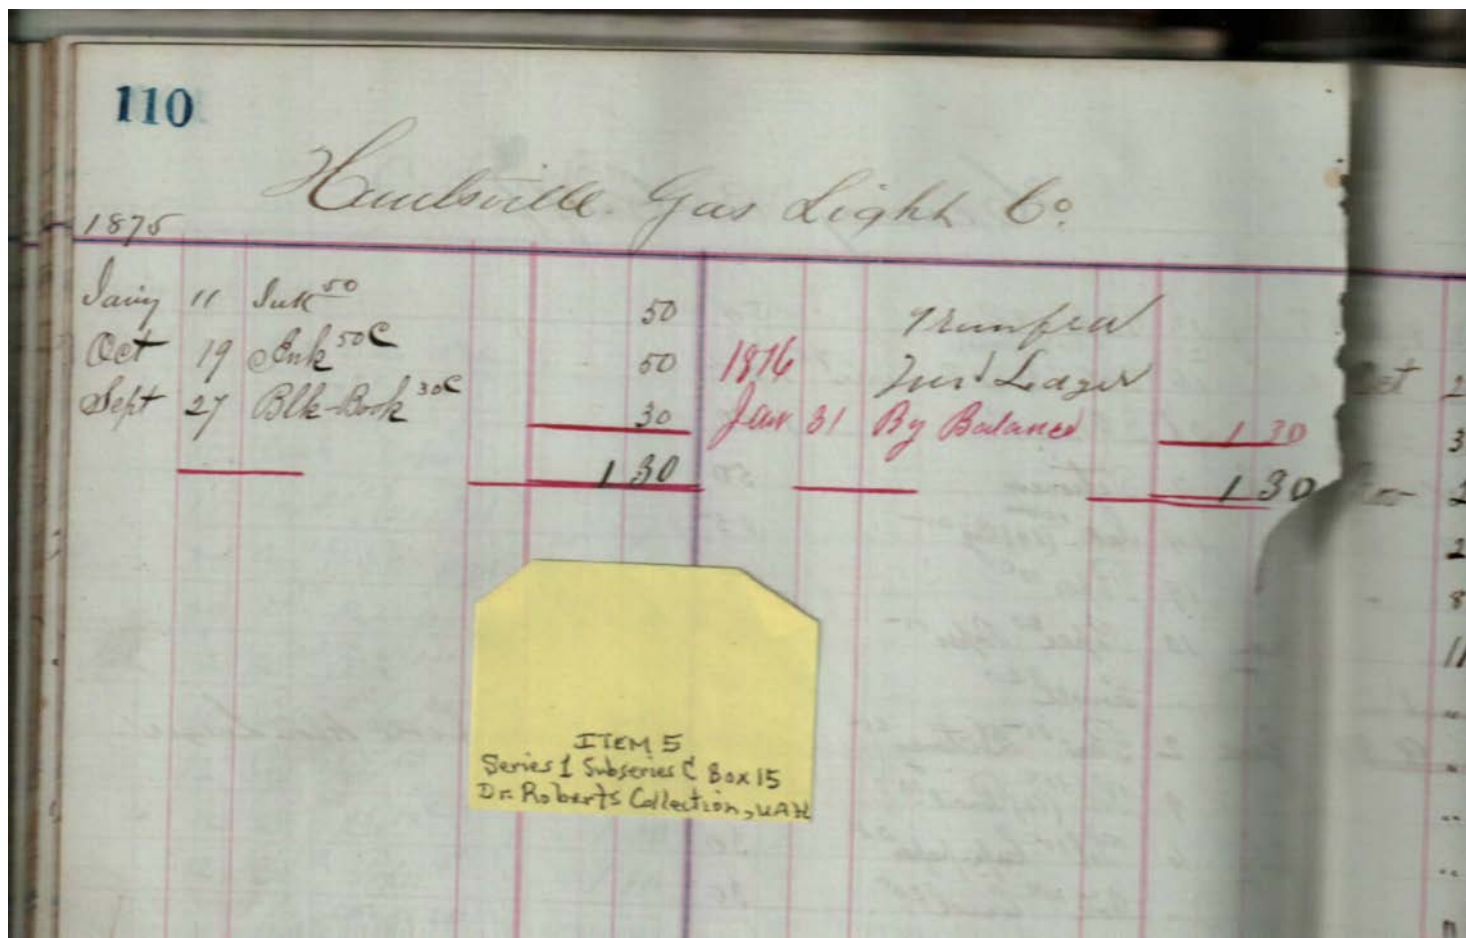 110
Huntsville Gas Light Co.
1875
Jany 11 Ink 50 50
Oct 19 Ink 50c 50
Sept 27 Blk-Book 30c 30
1 30
Transferd
1876
Ledger
Jan 31 By Balance 1 30
1 30
ITEM 5
Series 1 Subseries C Box 15
Dr. Roberts Collection, UAH
Oct 2
3
2
2
8
11